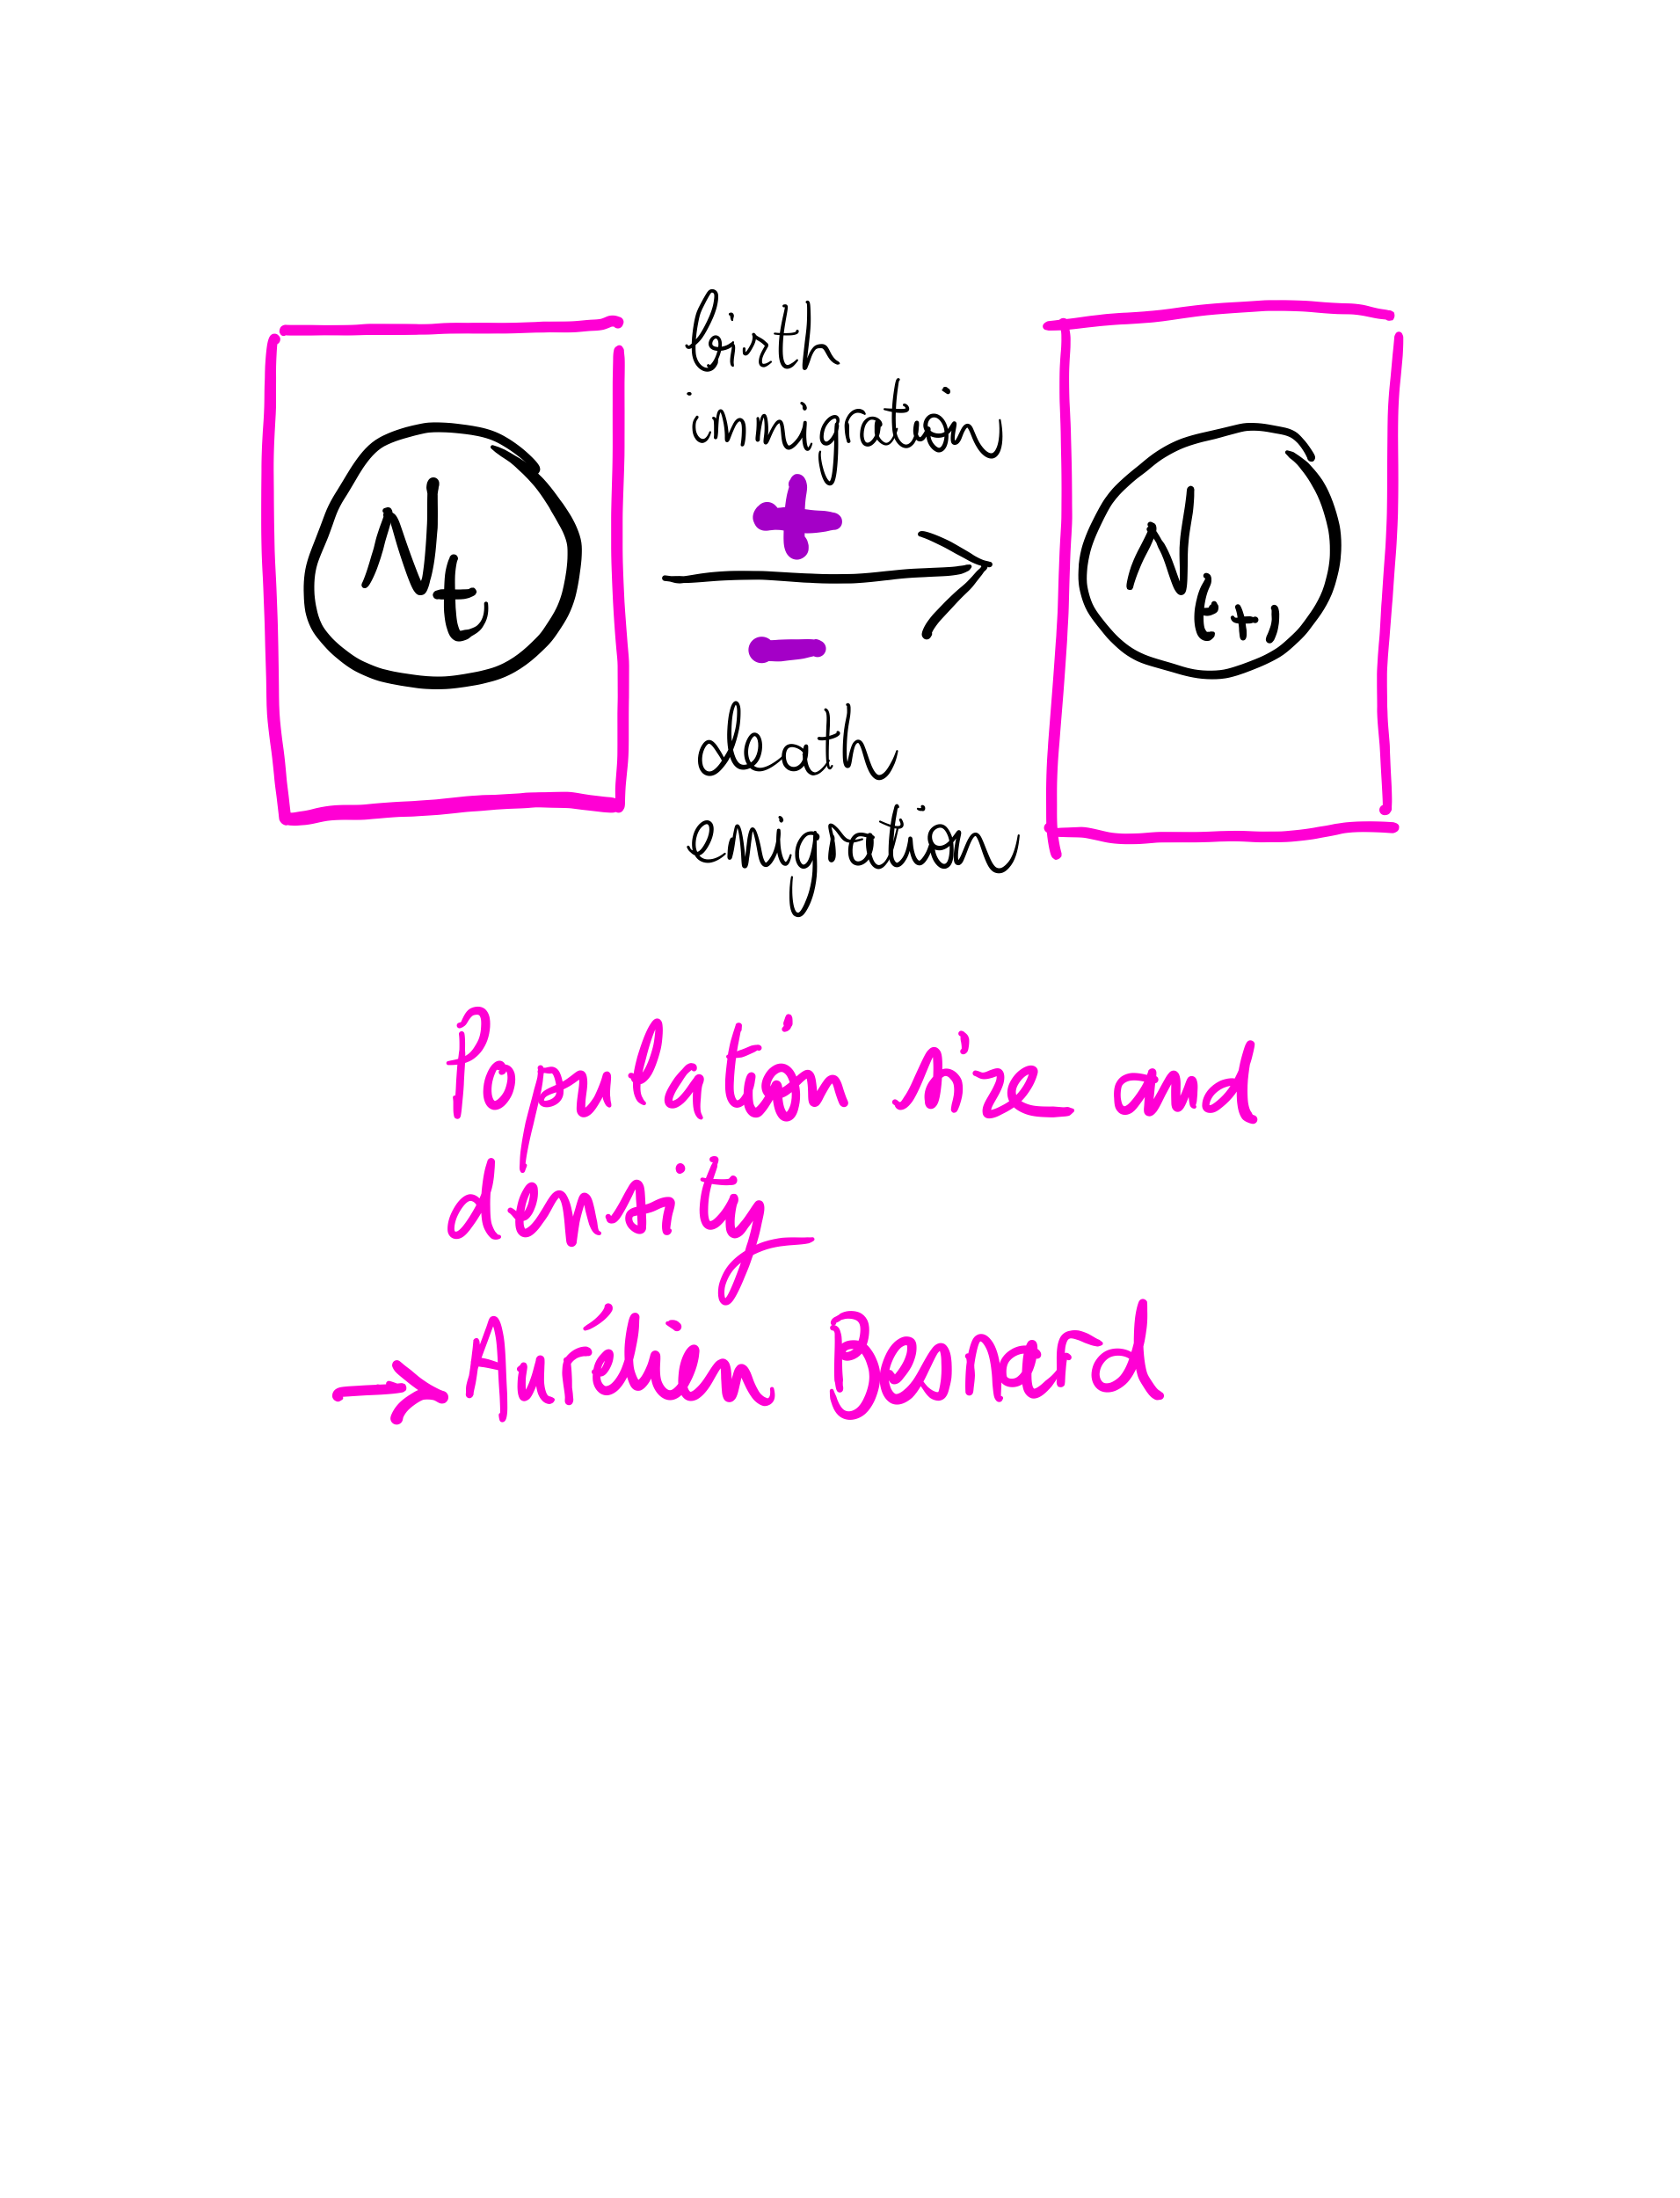 birth
immigration
+
N_t
N_t+1
-
death
emigration
Population size and
density
→ Aurélien Besnard